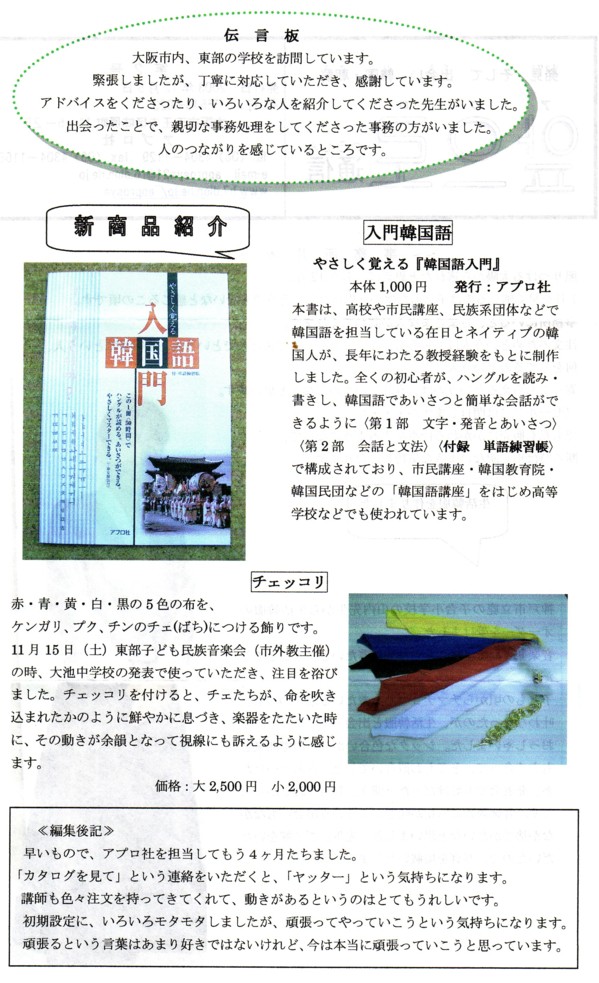 伝言板
大阪市内、東部の学校を訪問しています。
緊張しましたが、丁寧に対応していただき、感謝しています。
アドバイスをくださったり、いろいろな人を紹介してくださった先生がいました。
出会ったことで、親切な事務処理をしてくださった事務の方がいました。
人のつながりを感じているところです。
新商品紹介
やさしく覚える
入門
韓国語
この1冊(50時間)で
ハングルが読める、あいさつができる。
やさしくマスターできる。
アプロ社
入門韓国語
やさしく覚える『韓国語入門』
本体 1,000 円　発行：アプロ社
本書は、高校や市民講座、民族系団体などで
韓国語を担当している在日とネイティブの韓
国人が、長年にわたる教授経験をもとに制作
しました。全くの初心者が、ハングルを読み・
書きし、韓国語であいさつと簡単な会話がで
きるように〈第１部　文字・発音とあいさつ〉
〈第２部　会話と文法〉〈付録　単語練習帳〉
で構成されており、市民講座・韓国教育院・
韓国民団などの「韓国語講座」をはじめ高等
学校などでも使われています。
チェッコリ
赤・青・黄・白・黒の５色の布を、
ケンガリ、プク、チンのチェ(ばち)につける飾りです。
11 月 15 日（土）東部子ども民族音楽会（市外教主催）
の時、大池中学校の発表で使っていただき、注目を浴び
ました。チェッコリを付けると、チェたちが、命を吹き
込まれたかのように鮮やかに息づき、楽器をたたいた時
に、その動きが余韻となって視線にも訴えるように感じ
ます。
価格：大 2,500 円　小 2,000 円
≪編集後記≫
早いもので、アプロ社を担当してもう４ヶ月たちました。
「カタログを見て」という連絡をいただくと、「ヤッター」という気持ちになります。
講師も色々注文を持ってきてくれて、動きがあるというのはとてもうれしいです。
初期設定に、いろいろモタモタしましたが、頑張ってやっていこうという気持ちになります。
頑張るという言葉はあまり好きではないけれど、今は本当に頑張っていこうと思っています。